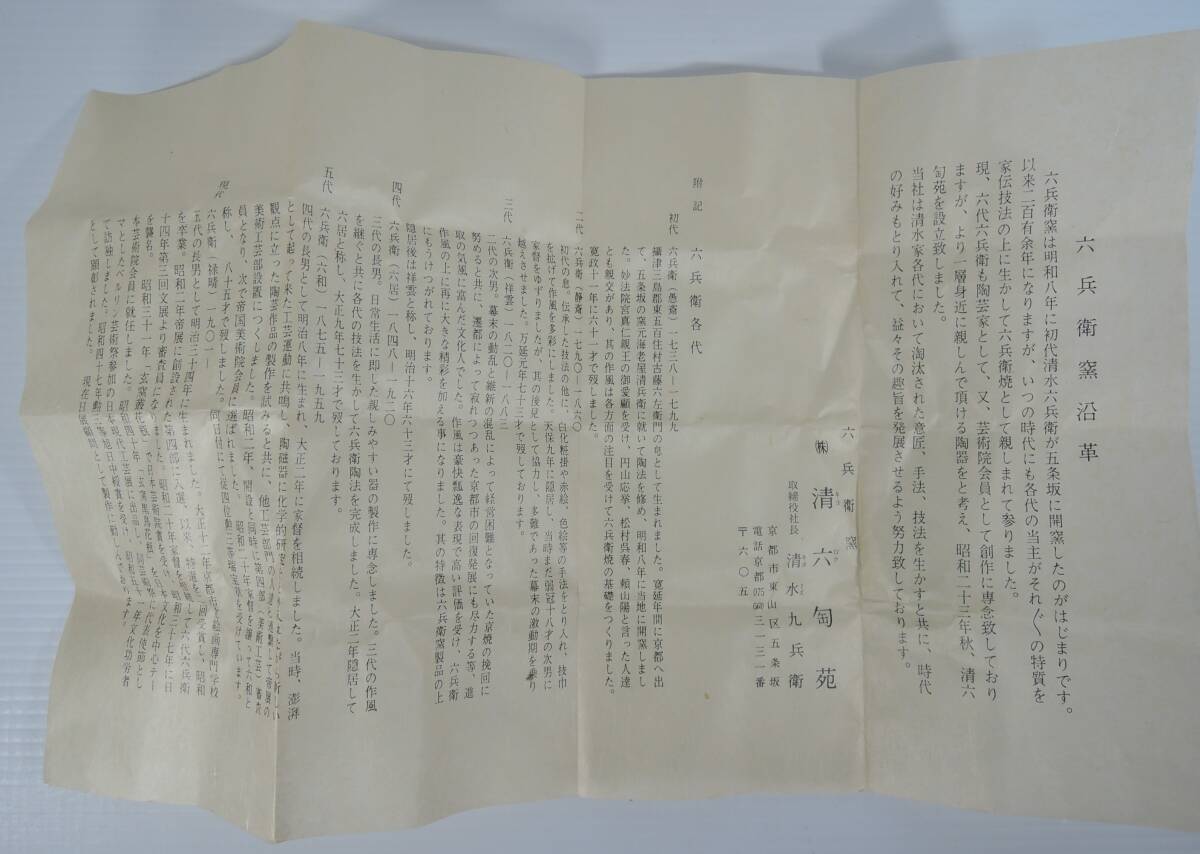 六兵衛窯沿革
六兵衛窯は明和八年に初代清水六兵衛が五条坂に開窯したのがはじまりです。
以来二百有余年になりますが、いつの時代にも各代の当主がそれ〲の特質を
家伝技法の上に生かして六兵衛焼として親しまれて参りました。
現、六代六兵衛も陶芸家として、又、芸術院会員として創作に専念致しており
ますが、より一層身近に親しんで頂ける陶器をと考え、昭和二十三年秋、清六
匋苑を設立致しました。
当社は清水家各代において淘汰された意匠、手法、技法を生かすと共に、時代
の好みもとり入れて、益々その趣旨を発展させるよう努力致しております。
六兵衛窯
㈱清六匋苑
取締役社長 清水九兵衛
京都市東山区五条坂
電話京都075三一三一番
〒六〇五
附記 六兵衛各代
初代 六兵衛(愚斎)一七三八-一七九九
攝津三島郡東五百住村古藤六左衛門の息として生まれました。寛延年間に京都へ出
て、五条坂の窯元海老屋清兵衛に就いて陶法を修め、明和八年に当地に開窯しまし
た。妙法院宮真仁親王の御愛顧を受け、円山応挙、松村呉春、頼山陽と言った人達
とも親交があり、其の作風は各方面の注目を受けて六兵衛焼の基礎をつくりました。
寛政十一年に六十一才で歿しました。
二代 六兵衛(静斎)一七九〇-一八六〇
初代の息。伝承した技法の他に、白化粧掛や赤絵、色絵等の手法をとり入れ、技巾
を拡げて作風を多彩にしました。天保九年に隠居し、当時まだ弱冠十八才の次男に
家督をゆずりましたが、其の後見として協力し、多難であった幕末の激動期を乗り
越えさせました。万延元年七十三才で歿しております。
三代 六兵衛(祥雲)一八二〇-一八八三
二代の次男。幕末の動乱と維新の混乱によって経営困難となっていた京焼の挽回に
努めると共に、遷都によって寂れつつあった京都市の回復発展にも尽力する等、進
取の気風に富んだ文化人でした。作風は豪快飄逸な表現で高い評価を受け、六兵衛
作風の上に再に大きな精彩を加える事になりました。其の特徴は六兵衛窯製品の上
にもうけつがれております。
隠居後は祥雲と称し、明治十六年六十三才にて歿しました。
四代 六兵衛(六居)一八四八-一九二〇
三代の長男。日常生活に即した親しみやすい器の製作に専念しました。三代の作風
を継ぐと共に各代の技法を生かして六兵衛陶法を完成しました。大正二年隠居して
六居と称し、大正九年七十三才で歿しております。
五代 六兵衛(六和)一八七五-一九五九
四代の長男として明治八年に生まれ、大正二年に家督を相続しました。当時、澎湃
として起って来た工芸運動に共鳴し、陶磁器に化学的研究を
観点に立った陶芸作品の製作を試みると共に、他工芸部門の人達と
美術工芸部設置につくしました。昭和二年、開設と同時に第四部(美術工芸)審査
員となり、次で帝国美術院会員に選ばれました。昭和二十年家督を譲って六和と
称し、八十五才で歿しました。同日付にて従四位勲三等瑞宝章を受けています。
現代 六兵衛(禄晴)一九〇一-
五代の長男として明治三十四年に生まれました。大正十一年京都市立絵画専門学校
を卒業。昭和二年帝展に創設された第四部に入選、以来、特選を三回受賞し、昭和
十四年第三回文展より審査員になりました。昭和二十年家督を
を襲名。昭和三十一年「玄窯叢花瓶」で日本芸術院賞を受け、昭和三十七年に日
本芸術院会員に就任しました。
マとしたベルリン芸術祭参加の日本現代工芸展に出品し、
て訪独しました。昭和四十七年勲三等旭日中綬章を受け、昭和五十一年、文化功労者
として顕彰されました。現在日展顧問として製作に励んでおります。